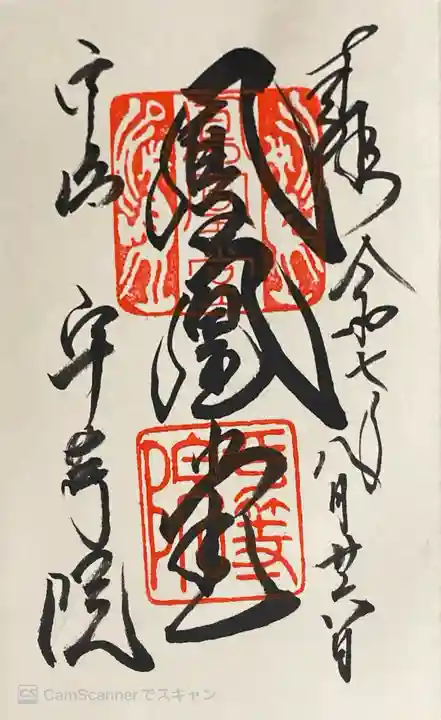 奉拝 令和七年八月廿六日
鳳凰堂
宇治 平等院
CS CamScannerでスキャン